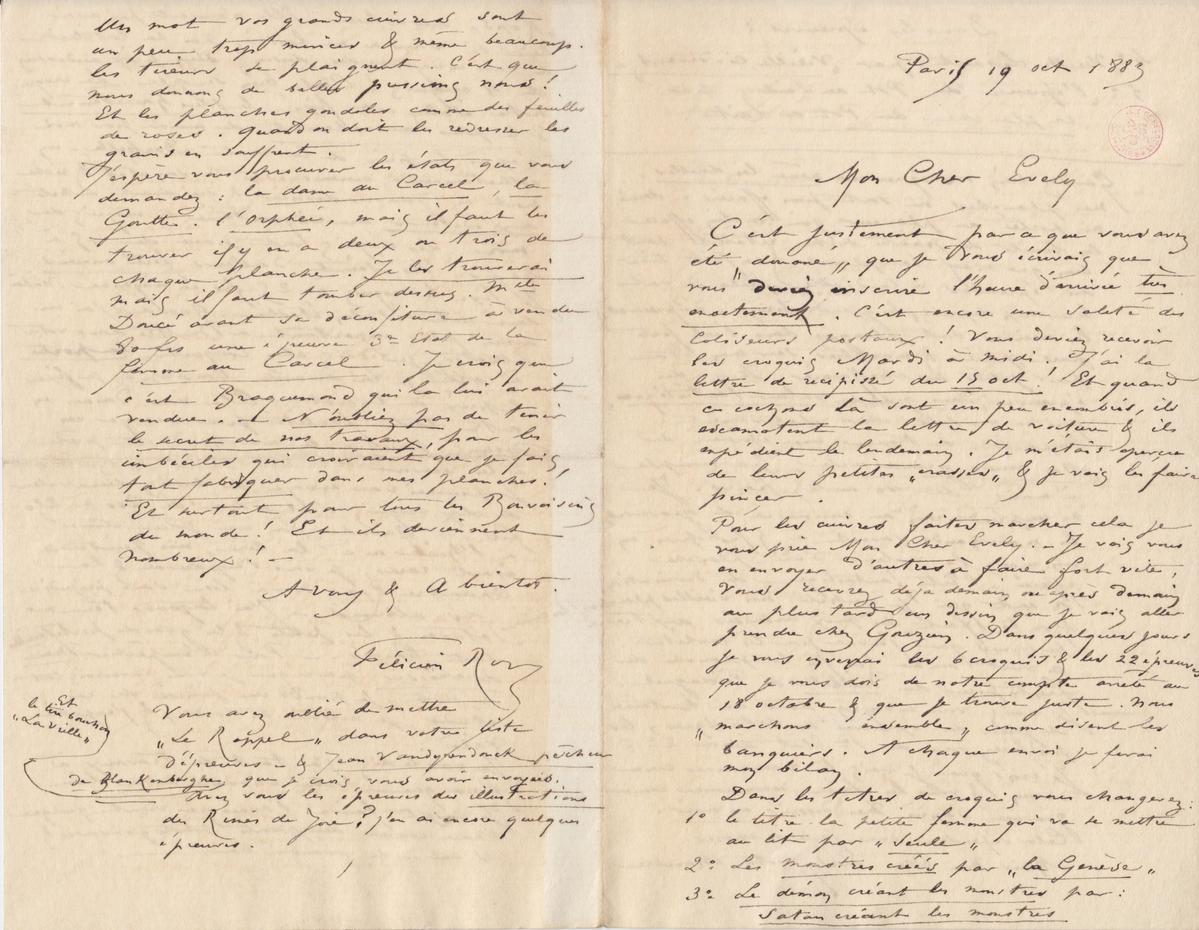 Paris 19 oct 1883
Mon Cher Evely
C'est justement parce que vous avez
été "donané" que je vous écrivais que
vous deviez inscrire l'heure d'arrivée très
exactement. C'est encore une saleté des
coliseurs postaux ! Vous deviez recevoir
les croquis Mardi à midi ! J'ai la
lettre de récipissé du 15 oct ! Et quand
ces cochons là sont un peu enembés, ils
escamotent la lettre de voiture & ils
expédient le lendemain. Je m'étais aperçu
de leurs petites "crasses" & je vais les faire
pincer.
Pour les cuivres faites marcher cela je
vous prie Mon Cher Evely. – Je vais vous
en envoyer d'autres à faire fort vite,
vous recevrez déjà demain ou après demain
au plus tard un dessin que je vais aller
prendre chez Gouzien. Dans quelques jours
je vous enverrai les 6 croquis & les 22 épreuves
que je vous dois de notre compte arrêté au
18 octobre & que je trouve juste. Nous
"marchons ensemble" comme disent les
banquiers. A chaque envoi je ferai
mon bilan.
Dans les titres de croquis vous changerez :
1° le titre la petite femme qui va se mettre
au lit par "Seule"
2° Les monstres créés par "la Genèse"
3° Le démon créant les monstres par :
Satan créant les monstres
Un mot vos grands cuivres sont
un peu trop minces & même beaucoup.
les tireurs se plaignent. C'est que
nous donnons de belles pressions nous !
Et les planches gondoles comme des feuilles
de roses. Quand on doit les redresser les
grains en souffrent.
J'espère vous procurer les états que vous
demandez : la dame au Carcel, la
Goutte. l'Orphée, mais il faut les
trouver il y en a deux ou trois de
chaque planche. Je les trouverai
mais il faut tomber dessus. Mlle
Doucé avant sa déconfiture a vendu
80 frs une épreuve 3e Etat de la
femme au Carcel. Je crois que
c'est Braquemond qui la lui avait
vendue. – N'oubliez pas de tenir
le secret de nos travaux, pour les
imbéciles qui croiraient que je fais
tout fabriquer dans mes planches !
Et surtout pour tous les
du monde ! Et ils deviennent
nombreux ! –
A vous & A bientot.
Félicien Rops
Vous avez oublié de mettre
"Le Rappel" dans votre liste
d'épreuves – & Jean Vandyrendonck pêcheur
de Blankenberghe, que je crois vous avoir envoyés.
Et
le tire bouchon
"La Vrille"
Avez vous les épreuves des illustrations
des Rimes de Joie ? j'en ai encore quelques
épreuves.